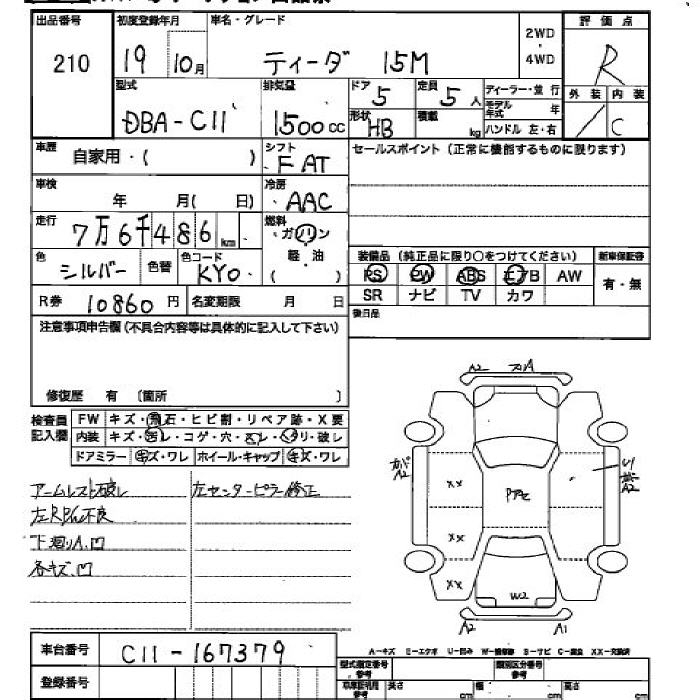 出品番号 初度登録年月 車名・グレード 2WD・4WD 評価点
210 19 10月 ティーダ 15M R
型式 排気量 ドア 定員 ディーラー・並行 外装 内装
DBA-C11 1500cc 5 5人 モデル年式 年 / C
形状 HB 積載 kg ハンドル 左・右
車歴 自家用・( ) シフト FAT セールスポイント(正常に機能するものに限ります)
車検 年 月( 日) 冷房 AAC
走行 7万6千486km 燃料 ガソリン・軽・油 ( )
色 シルバー 色替 色コード KYO 装備品(純正品に限り○をつけてください) 新車保証書
PS PW ABS エアB AW 有・無
R券 10860円 名変期限 月 日 SR ナビ TV カワ
注意事項申告欄(不具合内容等は具体的に記入して下さい) 後日品
修復歴 有 〔箇所 〕
検査員記入欄 FW キズ・飛石・ヒビ割・リペア跡・X要
内装 キズ・汚レ・コゲ・穴・スレ・ハリ・破レ
ドアミラー キズ・ワレ ホイール・キャップ キズ・ワレ
アームレスト破レ 左センターピラー修正
左RPW不良
下廻りA.凹
各キズ.凹
A2 A
A2 XX A2
XX
XX W2
A2 A1
車台番号 C11-167379 A-キズ E-エクボ U-凹み W-補修跡 S-サビ C-腐食 XX-交換済
型式指定番号 参考 類別区分番号 参考
登録番号 参考 長さ cm 幅 cm 高さ cm